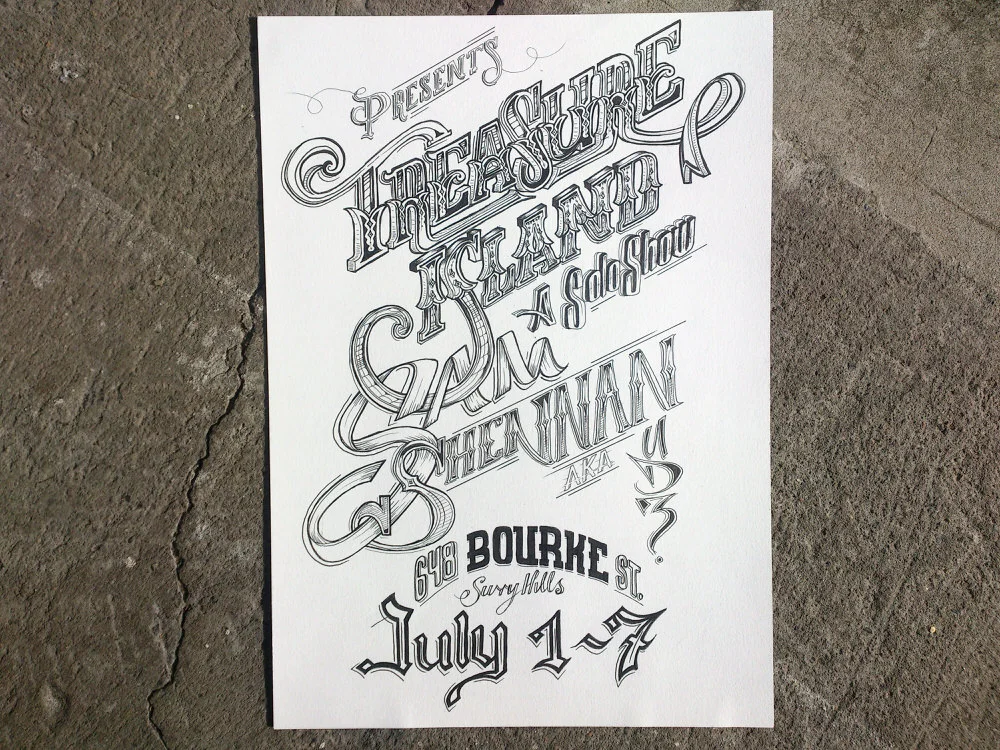 PRESENTS
TREASURE
ISLAND
A Solo Show
SAM
SHENNAN
AKA
648 BOURKE ST.
Surry Hills
July 1-7